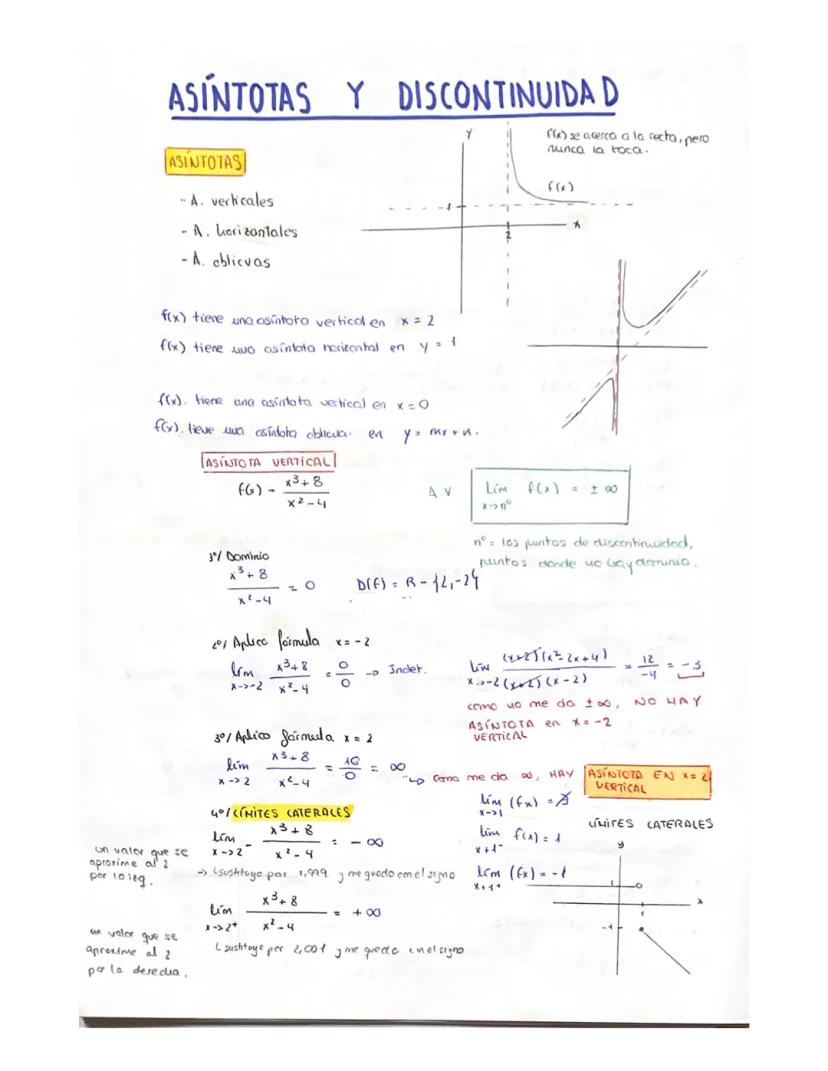 ASÍNTOTAS Y DISCONTINUIDAD
f(x) se acerca a la recta, pero
nunca la toca.
ASÍNTOTAS
- A. verticales
- A. horizontales
- A. oblicuas
y
f(x)
1
2
x
f(x) tiene una asíntota vertical en x = 2
f(x) tiene una asíntota horizontal en y = 1
f(x). tiene una asíntota vertical en x = 0
f(x). tiene una asíntota oblicua. en y = mx + n.
ASÍNTOTA VERTICAL
f(x) = x³+8 / x²-4
A.V lím x->nº f(x) = ± ∞
nº = los puntos de discontinuidad,
puntos donde no hay dominio.
1º/ Dominio
x³+8 / x²-4 = 0 D(f) = R - {2,-2}
2º/ Aplico fórmula x = -2
lím x->-2 x³+8 / x²-4 = 0/0 -> Indet.
lím x->-2 (x+2)(x²-2x+4) / (x+2)(x-2) = 12/-4 = -3
como no me da ±∞, NO HAY
ASÍNTOTA en x = -2
VERTICAL
3º/ Aplico fórmula x = 2
lím x->2 x³+8 / x²-4 = 16/0 = ∞
Como me da ∞, HAY ASÍNTOTA EN x=2
VERTICAL
4º/ LÍMITES LATERALES
lím x->2⁻ x³+8 / x²-4 = - ∞
un valor que se
aproxime al 2
por la izq.
-> (sustituyo por 1,999 y me quedo con el signo
lím x->2⁺ x³+8 / x²-4 = + ∞
un valor que se
aproxime al 2
por la derecha.
(sustituyo por 2,001 y me quedo con el signo
lím x->1 (fx) = ∄
LÍMITES LATERALES
lím x->1⁻ f(x) = 1
lím x->1⁺ (fx) = -1
y
1
x
-1